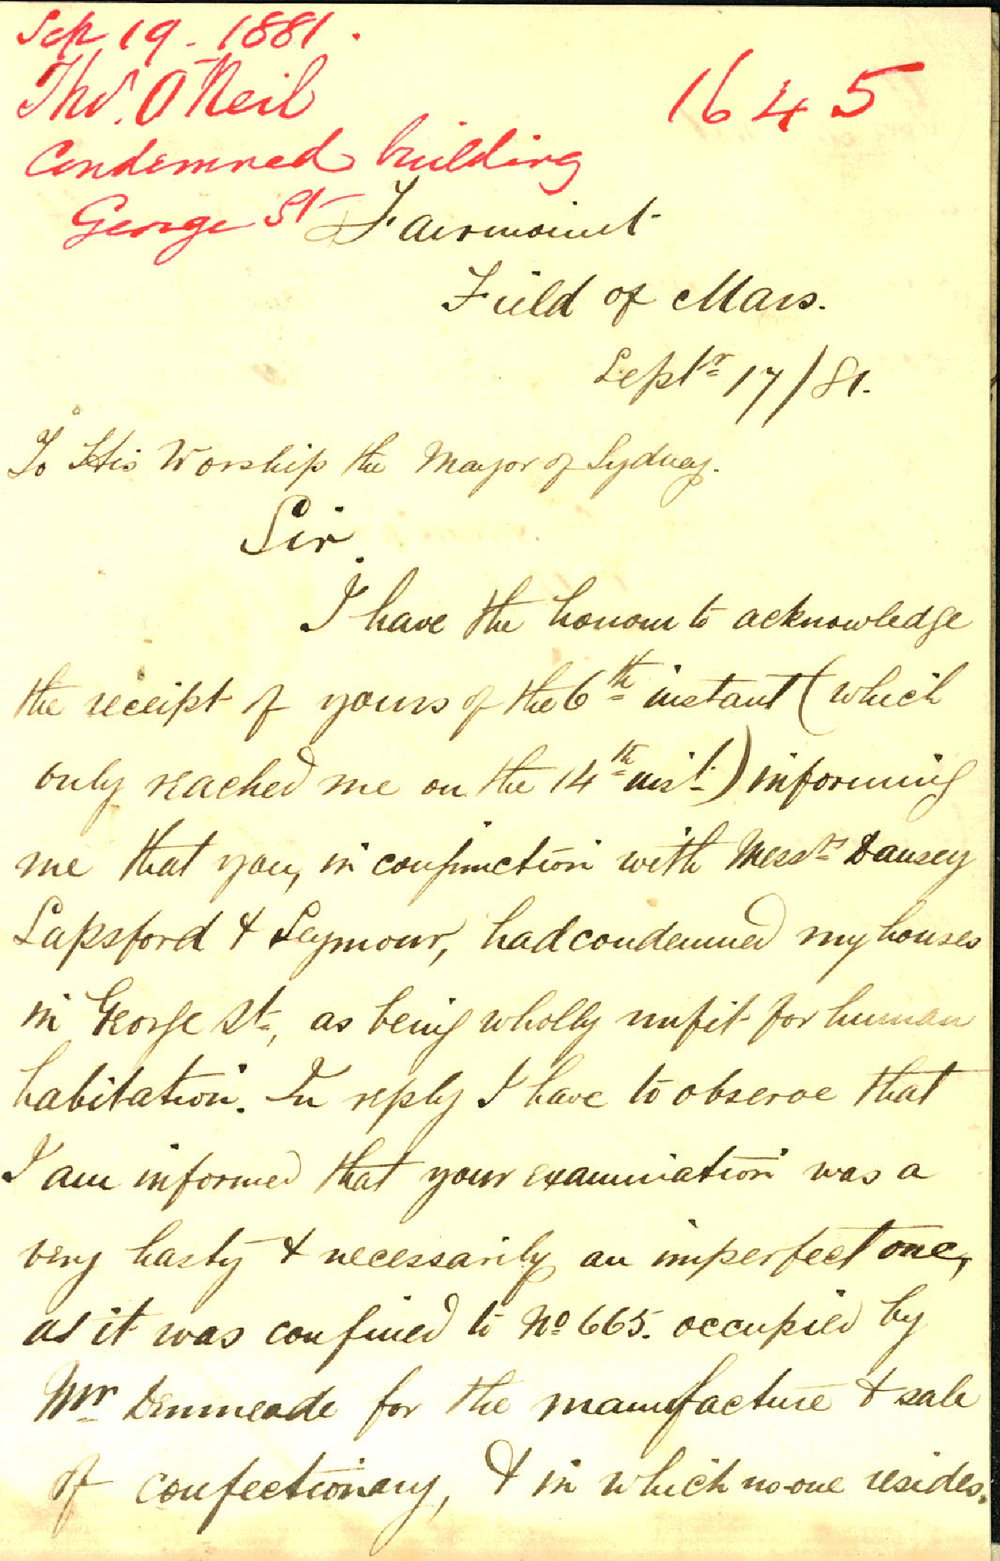 Sep 19. 1881.
Thos. O'Neil
1645
Condemned building
George St
Fairmount
Field of Mars.
Septr 17/81.
To His Worship the Mayor of Sydney.
Sir
I have the honour to acknowledge
the receipt of yours of the 6th instant (which
only reached me on the 14th inst.) informing
me that you, in conjunction with Messrs Dansey
Lapsford & Seymour, had condemned my houses
in George St., as being wholly unfit for human
habitation. In reply I have to observe that
I am informed that your examination was a
very hasty & necessarily an imperfect one,
as it was confined to No 665. occupied by
Mr Denmeade for the manufacture & sale
of confectionary, & in which no-one resides.